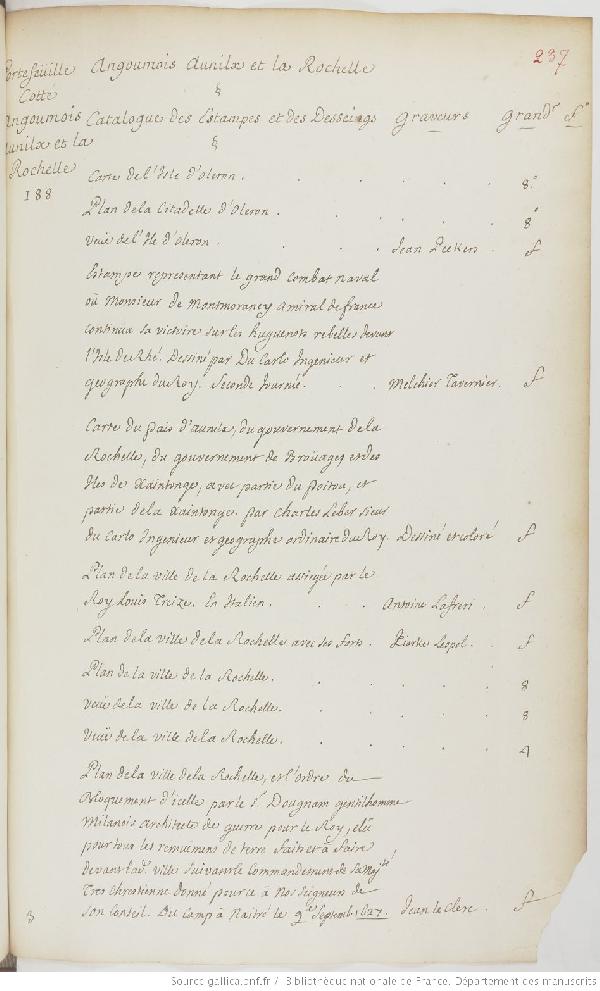 237
Portefeüille
Cotté
Angoumois
Aunilx et la
Rochelle
188
Angoumois Aunilx et la Rochelle
§
Catalogue des Estampes et des Desseings Graveurs Grandr fo
§
Carte de l'Isle d'Oleron. 8o
Plan de la Citadelle d'Oleron. 8o
Veüe de l'Ile d'Oleron. Jean Peeters f
Estampe representant le grand Combat naval
où Monsieur de Montmorancy Amiral de france
continua sa victoire sur les huguenots rebelle devant
l'Isle du Rhé. Dessiné par Du Carlo Ingenieur et
geographe du Roy. Seconde Journée. Melchier Tavernier. f
Carte du païs d'aunilx, du gouvernement de la
Rochelle, du gouvernement de Broüages, et des
Iles de Xaintonge, avec partie du poitou, et
partie de la Xaintonge. par Charles Leber sieur
du Carlo Ingenieur et geographe ordinaire du Roy. Dessiné et coloré f
Plan de la ville de la Rochelle assiegée par le
Roy Louis Treize. En Italien. Antoine Lafreri. f
Plan de la ville de la Rochelle avec ses forts. Leopol. f
Plan de la ville de la Rochelle. 8
Veüe de la ville de la Rochelle. 8
Veüe de la ville de la Rochelle. 4
Plan de la ville de la Rochelle, et l'ordre du
Bloquement d'icelle par le Sr Dougnam gentilhomme
Milanois Architecte de guerre pour le Roy,
pour tous les remuemens de terre faits et à faire
devant lad. ville suivant le Commandement de sa Majté
Tres Chretienne donné pour ce à Nos Seigneurs de
son Conseil. Du Camp à Naitré le 9 Septemb. 1627. Jean le Clerc. f
8
Source gallica.bnf.fr / Bibliothèque nationale de France. Département des manuscrits